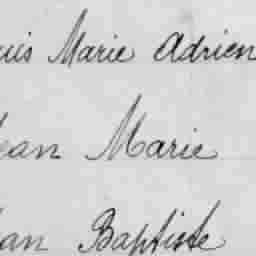 uis Marie Adrien
ean Marie
an Baptiste